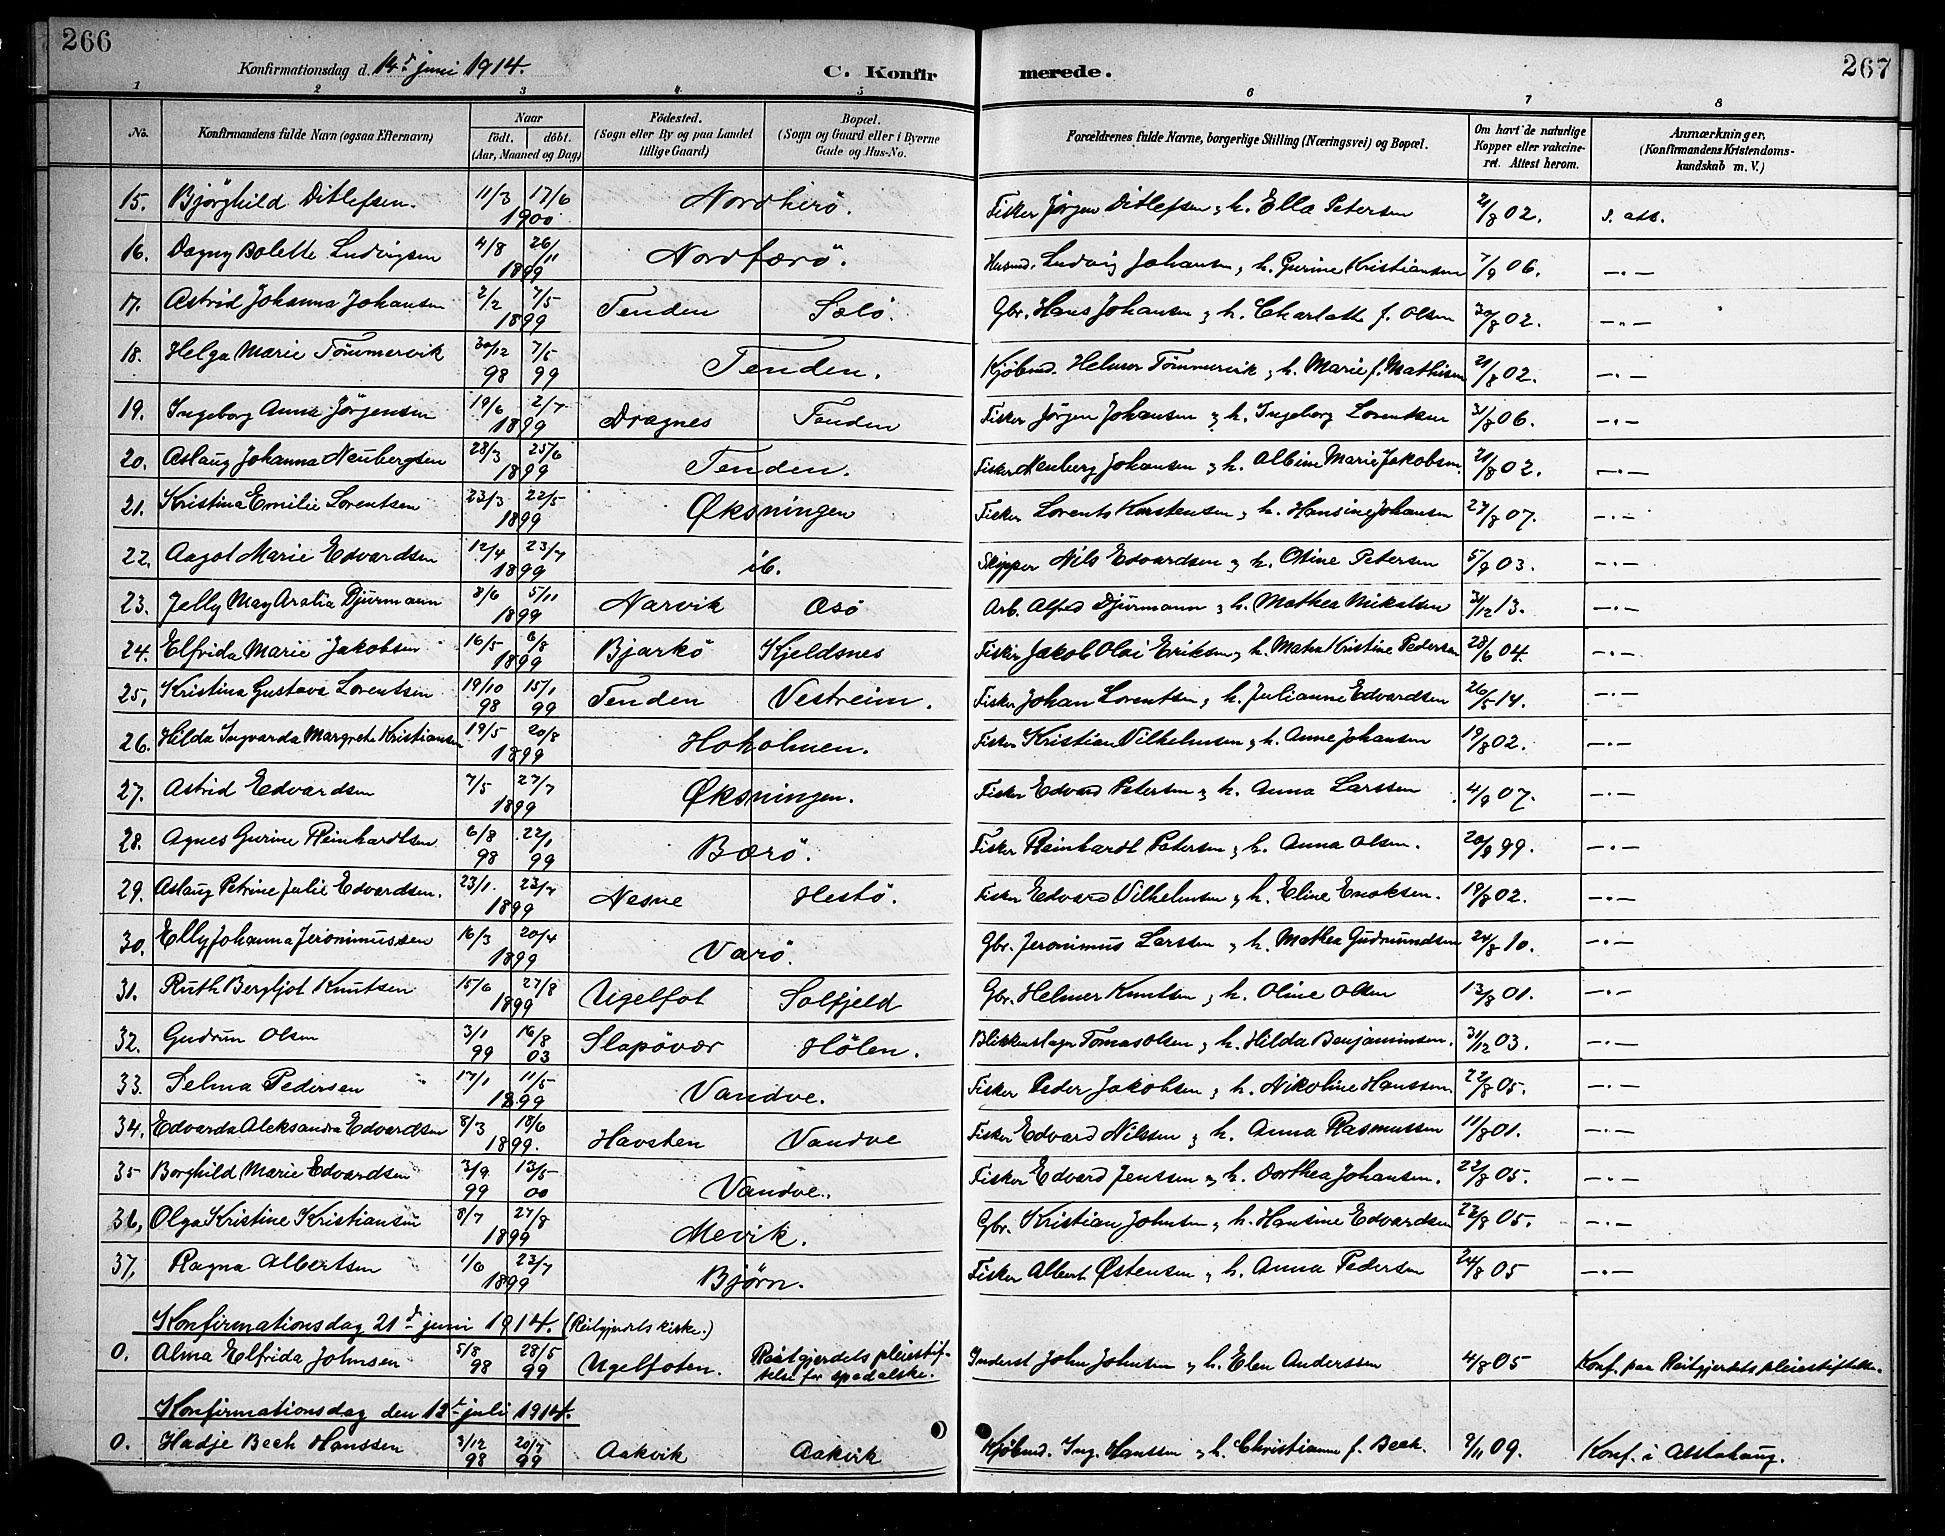 266
267
Konfirmationsdag d. 14de juni 1914.
C. Konfirmerede.
1 2 3 4 5 6 7 8
No.
Konfirmandens fulde Navn (ogsaa Efternavn)
Naar
födt. döbt.
(Aar, Maaned og Dag)
Födested.
(Sogn eller By og paa Landet tillige Gaard)
Bopæl.
(Sogn og Gaard eller i Byerne Gade og Hus-No.
Forældrenes fulde Navne, borgerlige Stilling (Næringsvei) og Bopæl.
Om havt de naturlige Kopper eller vakcineret. Attest herom.
Anmærkninger.
(Konfirmandens Kristendomskundskab m. V.)
15. Bjørghild Ditlefsen. 11/3 17/6 1900 Nordherö. Fisker Jørgen Ditlefsen & h. Ella Petersen 21/8 02. s. att.
16. Dagny Bolette Ludvigsen 4/8 26/11 1899 Nordfærö. Husmd. Ludvig Johansen & h. Gurine Kristiansen 7/9 06. —"—
17. Astrid Johanna Johansen 2/2 7/5 1899 Tenden Sælö. Gbr. Hans Johansen & h. Charlotte f. Olsen 20/8 02. —"—
18. Helga Marie Tömmervik 30/12 98 7/5 99 Tenden. Kjöbmd. Helmer Tömmervik & h. Marie f. Mathisen 21/8 02. —"—
19. Ingeborg Anna Jörgensen 19/6 2/7 1899 Dragnes Tenden Fisker Jørgen Johansen & h. Ingeborg Lorentsen 31/8 06. —"—
20. Aslaug Johanna Neubergsen 28/3 25/6 1899 Tenden. Fisker Neuberg Johansen & h. Albine Marie Jakobsen. 21/8 02. —"—
21. Kristina Emilie Lorentsen 23/3 22/5 1899 Øksningen Fisker Lorents Karstensen & h. Hansine Johansen 27/8 07. —"—
22. Aagot Marie Edvardsen 12/4 23/7 1899 ib. Skipper Nils Edvardsen & h. Otine Petersen 5/9 03. —"—
23. Jelly May Aralia Djurmann 8/6 5/11 1899 Narvik Æsö Arb. Alfred Djurmann & h. Mathea Mikalsen 31/12 13. —"—
24. Elfrida Marie Jakobsen 16/5 6/8 1899 Bjarkö Kjeldsnes Fisker Jakob Olai Eriksen & h. Kristine Pedersen 28/6 04. —"—
25, Kristina Gustava Lorentsen 19/10 98 15/1 99 Tenden Vestreim. Fisker Johan Lorentsen & h. Julianne Edvardsen 26/5 14. —"—
26. Hilda Ingvarda Margrete Kristiansen 19/5 20/8 1899 Hoholmen. Fisker Kristian Vilhelmsen & h. Anne Johansen 19/8 02. —"—
27. Astrid Edvardsen 7/5 27/7 1899 Øksningen. Fisker Edvard Petersen & h. Anna Larssen 4/9 07. —"—
28. Agnes Gurine Reinhardtsen 6/8 98 22/1 99 Bærö. Fisker Reinhardt Petersen & h. Anna Olsen. 20/9 99. —"—
29. Aslaug Petrine Julie Edvardsen. 23/1. 23/7 1899 Nesne Hestö. Fisker Edvard Vilhelmsen & h. Eline Enoksen. 19/8 02. —"—
30. Elly Johanna Jeronimussen 16/3 20/4 1899 Varö. Gbr. Jeronimus Larssen & h. Mathea Gudmundsen 24/8 10. —"—
31. Ruth Bergljot Knutsen 15/6 27/8 1899 Ugelfot Solfjeld Gbr. Helmer Knutsen & h. Oline Olsen 13/8 01. —"—
32. Gudrun Olsen 3/1 99 16/8 03 Slapövær Hölen. Blikkenslager Tomas Olsen & h. Hilda Benjaminsen. 31/12 03. —"—
33. Selma Pedersen 17/1 11/5 1899 Vandve. Fisker Peder Jakobsen & h. Nikoline Hanssen 22/8 05. —"—
34. Edvarda Aleksandra Edvardsen 8/3 18/6 1899. Havsten Vandve Fisker Edvard Nilssen & h. Anna Rasmussen 11/8 01. —"—
35 Borghild Marie Edvardsen 3/9 99 13/5 00 Vandve. Fisker Edvard Jenssen & h. Dorthea Johansen. 22/8 05. —"—
36, Olga Kristine Kristiansen 8/7 27/8 1899 Mevik. Gbr. Kristian Johnsen & h. Hansine Edvardsen 22/8 05. —"—
37, Ragna Albertsen 1/6 23/7 1899 Bjørn. Fisker Albert Østensen & h. Anna Pedersen 24/8 05 —"—
Konfirmationsdag 21de juni 1914. (Reitgjerdets kirke.)
0. Alma Elfrida Johnsen 5/8 98 28/5 99 Ugelfoten. Reitgjerdets pleiestiftelse for spedalske. Inderst John Johnsen & h. Elen Anderssen 4/8 05 Konf. paa Reitgjerdets pleiestiftelse.
Konfirmationsdag den 12te juli 1914.
0. Hadje Beck Hanssen 3/12 98 20/7 99 Aakvik Aakvik Kjöbmd. Ing. Hanssen & h. Christianne f. Beck. 9/11 09. Konf. i Alstahaug.